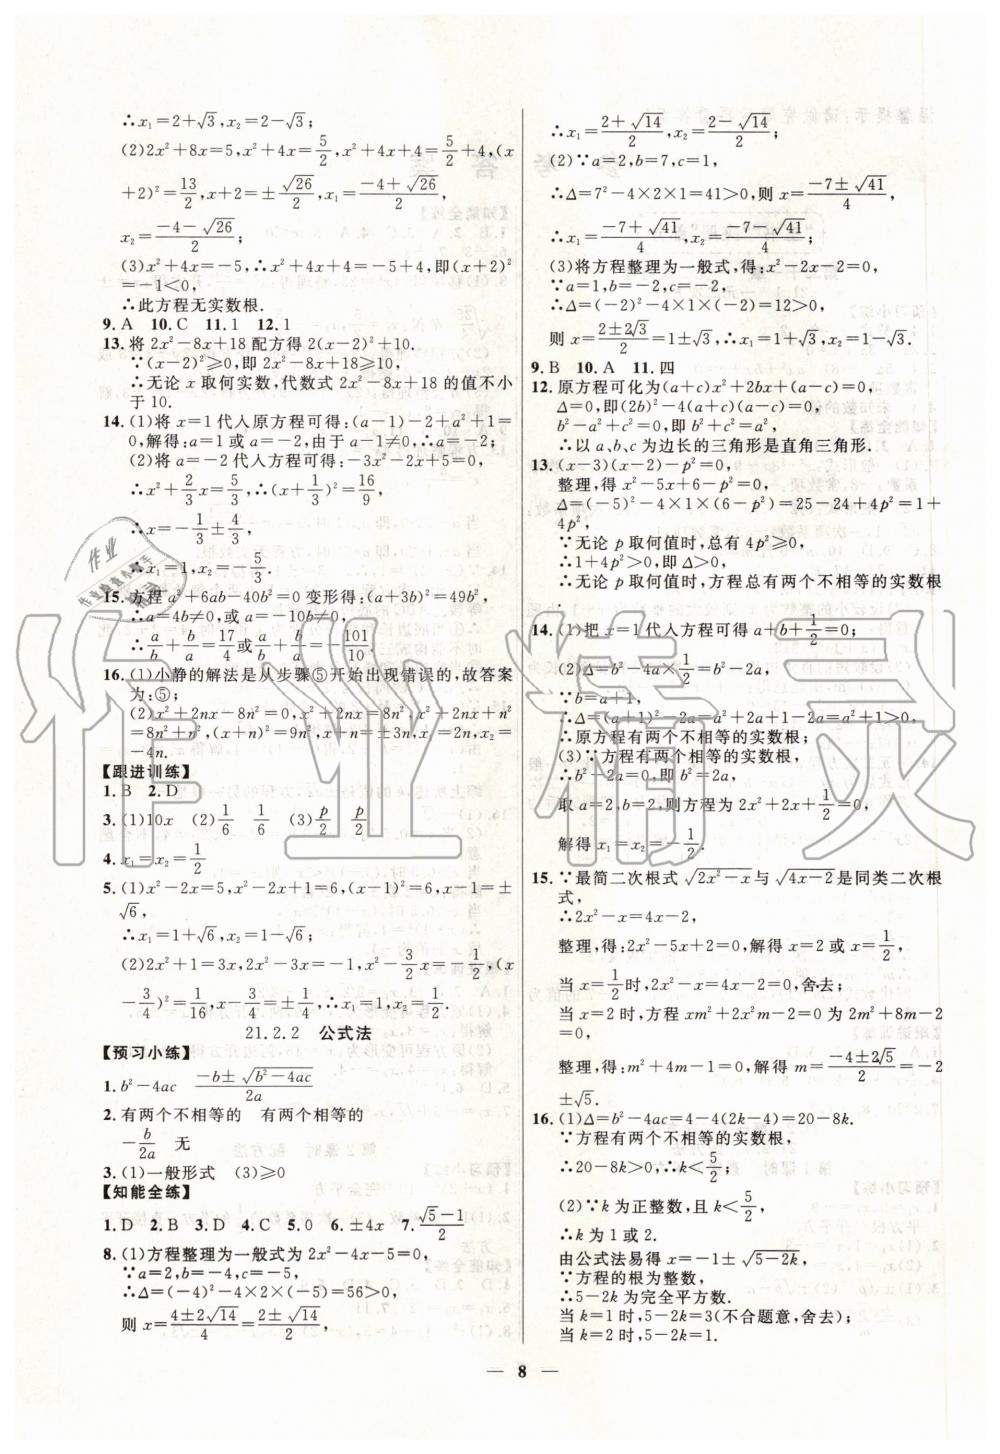 ∴x₁=2+√3,x₂=2-√3;
(2)2x²+8x=5,x²+4x=5/2,x²+4x+4=5/2+4,(x
+2)²=13/2,x+2=±√26/2,∴x₁=(-4+√26)/2,
x₂=(-4-√26)/2;
(3)x²+4x=-5,∴x²+4x+4=-5+4,即(x+2)²
=-1<0,
∴此方程无实数根.
9.A 10.C 11.1 12.1
13.将2x²-8x+18配方得2(x-2)²+10.
∵(x-2)²≥0,即2x²-8x+18≥10,
∴无论x取何实数,代数式2x²-8x+18的值不小
于10.
14.(1)将x=1代入原方程可得:(a-1)-2+a²+1=
0,解得:a=1或a=-2,由于a-1≠0,∴a=-2;
(2)将a=-2代入方程可得:-3x²-2x+5=0,
∴x²+2/3x=5/3,∴(x+1/3)²=16/9,
∴x=-1/3±4/3,
∴x₁=1,x₂=-5/3.
15.方程a²+6ab-40b²=0变形得:(a+3b)²=49b²,
∴a=4b≠0,或a=-10b≠0,
∴a/b+b/a=17/4或a/b+b/a=-101/10.
16.(1)小静的解法是从步骤⑤开始出现错误的,故答案
为:⑤;
(2)x²+2nx-8n²=0,x²+2nx=8n²,x²+2nx+n²
=8n²+n²,(x+n)²=9n²,x+n=±3n,x₁=2n,x₂=
-4n.
【跟进训练】
1.B 2.D
3.(1)10x (2)1/6 1/6 (3)p/2 p/2
4.x₁=x₂=1/2
5.(1)x²-2x=5,x²-2x+1=6,(x-1)²=6,x-1=±
√6,
∴x₁=1+√6,x₂=1-√6;
(2)2x²+1=3x,2x²-3x=-1,x²-3/2x=-1/2,(x
-3/4)²=1/16,x-3/4=±1/4,∴x₁=1,x₂=1/2.
21.2.2 公式法
【预习小练】
1.b²-4ac (-b±√(b²-4ac))/2a
2.有两个不相等的 有两个相等的
-b/2a 无
3.(1)一般形式 (3)≥0
【知能全练】
1.D 2.B 3.D 4.C 5.0 6.±4x 7.(√5-1)/2
8.(1)方程整理为一般式为2x²-4x-5=0,
∵a=2,b=-4,c=-5,
∴Δ=(-4)²-4×2×(-5)=56>0,
则x=(4±2√14)/4=(2±√14)/2,
∴x₁=(2+√14)/2,x₂=(2-√14)/2.
(2)∵a=2,b=7,c=1,
∴Δ=7²-4×2×1=41>0,则x=(-7±√41)/4,
∴x₁=(-7+√41)/4,x₂=(-7-√41)/4.
(3)将方程整理为一般式,得:x²-2x-2=0,
∵a=1,b=-2,c=-2,
∴Δ=(-2)²-4×1×(-2)=12>0,
则x=(2±2√3)/2=1±√3,∴x₁=1+√3,x₂=1-√3.
9.B 10.A 11.四
12.原方程可化为(a+c)x²+2bx+(a-c)=0,
Δ=0,即(2b)²-4(a+c)(a-c)=0,
b²-a²+c²=0,即b²+c²=a²,
∴以a、b、c为边长的三角形是直角三角形.
13.(x-3)(x-2)-p²=0,
整理,得x²-5x+6-p²=0,
Δ=(-5)²-4×1×(6-p²)=25-24+4p²=1+
4p²,
∵无论p取何值时,总有4p²≥0,
∴1+4p²>0,即Δ>0,
∴无论p取何值时,方程总有两个不相等的实数根
14.(1)把x=1代入方程可得a+b+1/2=0;
(2)Δ=b²-4a×1/2=b²-2a,
∵b=a+1,
∴Δ=(a+1)²-2a=a²+2a+1-2a=a²+1>0,
∴原方程有两个不相等的实数根;
(3)∵方程有两个相等的实数根,
∴b²-2a=0,即b²=2a,
取a=2,b=2,则方程为2x²+2x+1/2=0,
解得x₁=x₂=-1/2.
15.∵最简二次根式√(2x²-x)与√(4x-2)是同类二次根
式,
∴2x²-x=4x-2,
整理,得:2x²-5x+2=0,解得x=2或x=1/2,
当x=1/2时,2x²-x=4x-2=0,舍去;
当x=2时,方程xm²+2x²m-2=0为2m²+8m-2
=0,
整理,得:m²+4m-1=0,解得m=(-4±2√5)/2=-2
±√5.
16.(1)Δ=b²-4ac=4-4(2k-4)=20-8k.
∵方程有两个不相等的实数根,
∴20-8k>0,∴k<5/2;
(2)∵k为正整数,且k<5/2,
∴k为1或2,
由公式法易得x=-1±√(5-2k),
∵方程的根为整数,
∴5-2k为完全平方数.
当k=1时,5-2k=3(不合题意,舍去);
当k=2时,5-2k=1.
8
作业精灵